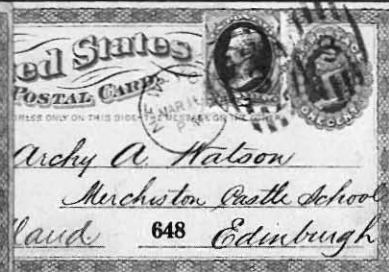 ed States
POSTAL CARD.
DRESS ONLY ON THIS SIDE-THE MESSAGE ON THE OTHER
NEW YO
MAR 11
P M
ONE CENT
Archy A. Watson
Merchiston Castle School
land 648 Edinburgh